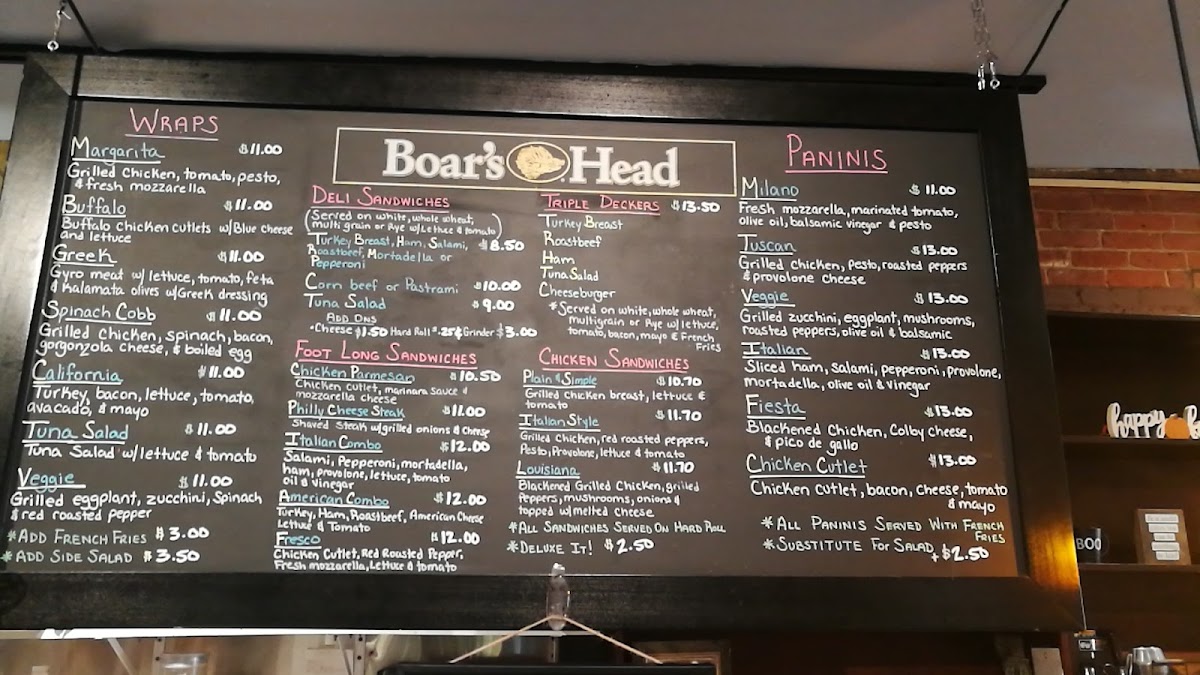 WRAPS
Margarita $11.00
Grilled Chicken, tomato, pesto,
& fresh mozzarella
Buffalo $11.00
Buffalo chicken cutlets w/Blue cheese
and lettuce
Greek $11.00
Gyro meat w/ lettuce, tomato, feta
& Kalamata olives w/Greek dressing
Spinach Cobb $11.00
Grilled Chicken, spinach, bacon,
gorgonzola cheese, & boiled egg
California $11.00
Turkey, bacon, lettuce, tomato,
avacado, & mayo
Tuna Salad $11.00
Tuna Salad w/lettuce & tomato
Veggie $11.00
Grilled eggplant, zucchini, Spinach
& red roasted pepper
*ADD FRENCH FRIES $3.00
*ADD SIDE SALAD $3.50
Boar's Head
DELI SANDWICHES
(Served on white, whole wheat,
multi grain or Rye w/Lettuce & tomato)
Turkey Breast, Ham, Salami, $8.50
Roastbeef, Mortadella or
Pepperoni
Corn beef or Pastrami $10.00
Tuna Salad $9.00
ADD ONS
*Cheese $1.50 Hard Roll $.25 & Grinder $3.00
FOOT LONG SANDWICHES
Chicken Parmesan $10.50
Chicken cutlet, marinara sauce &
mozzarella cheese
Philly Cheese Steak $11.00
Shaved Steak w/grilled onions & Cheese
Italian Combo $12.00
Salami, Pepperoni, mortadella,
ham, provolone, lettuce, tomato
oil & vinegar
American Combo $12.00
Turkey, Ham, Roastbeef, American Cheese
Lettuce & Tomato
Fresco $12.00
Chicken Cutlet, Red Roasted Pepper,
Fresh mozzarella, Lettuce & tomato
TRIPLE DECKERS $13.50
Turkey Breast
Roastbeef
Ham
Tuna Salad
Cheeseburger
*Served on white, whole wheat,
multigrain or Rye w/lettuce,
tomato, bacon, mayo & French
Fries
CHICKEN SANDWICHES
Plain & Simple $10.70
Grilled chicken breast, lettuce &
tomato
Italian Style $11.70
Grilled Chicken, red roasted peppers,
Pesto, Provolone, lettuce & tomato
Louisiana $11.70
Blackened Grilled Chicken, grilled
Peppers, mushrooms, onions &
topped w/melted cheese
*ALL SANDWICHES SERVED ON HARD ROLL
*DELUXE IT! $2.50
PANINIS
Milano $11.00
Fresh mozzarella, marinated tomato,
olive oil, balsamic vinegar & pesto
Tuscan $13.00
Grilled chicken, pesto, roasted peppers
& provolone cheese
Veggie $13.00
Grilled zucchini, eggplant, mushrooms,
roasted peppers, olive oil & balsamic
Italian $13.00
Sliced ham, salami, pepperoni, provolone,
mortadella, olive oil & vinegar
Fiesta $13.00
Blackened Chicken, Colby cheese,
& pico de gallo
Chicken Cutlet $13.00
Chicken cutlet, bacon, cheese, tomato
& mayo
*ALL PANINIS SERVED WITH FRENCH
FRIES
*SUBSTITUTE FOR SALAD +$2.50
happy
BOO